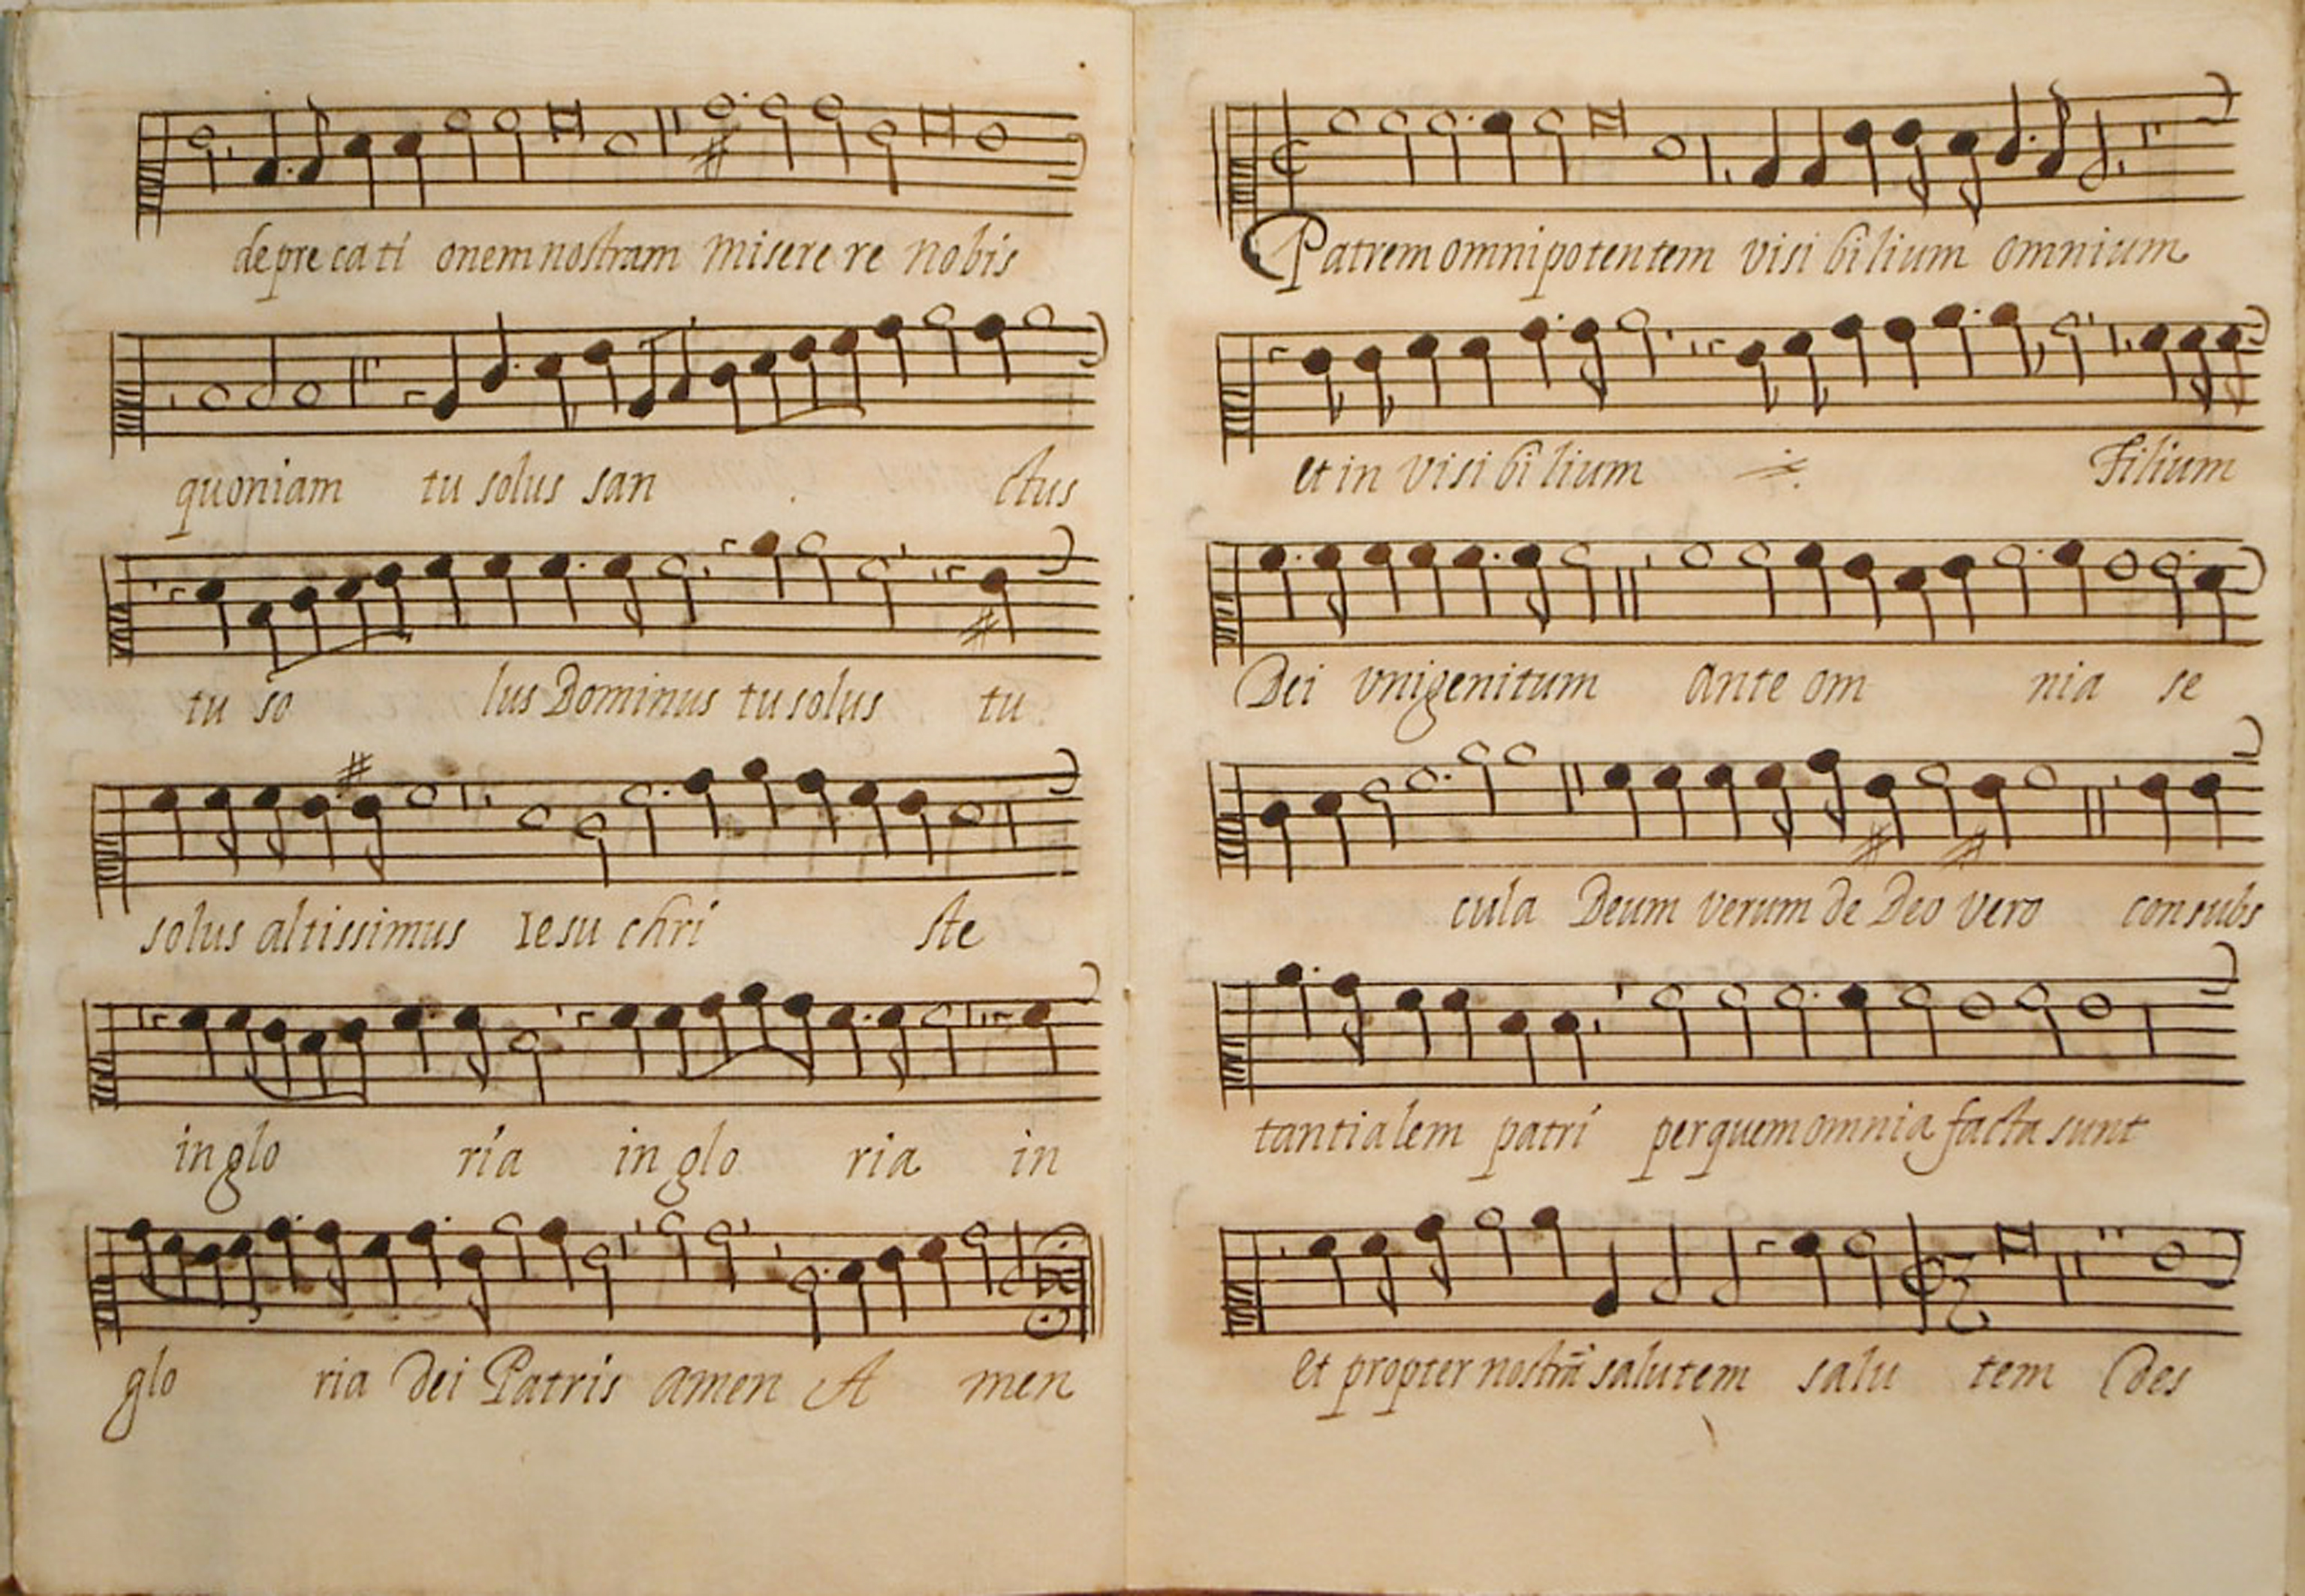 deprecati onem nostram miserere nobis
quoniam tu solus san ctus
tu so lus Dominus tu solus tu
solus altissimus Iesu chri ste
in glo ria in glo ria in
glo ria Dei Patris amen A men
Patrem omnipotentem visibilium omnium
et in visibilium Filium
Dei vnigenitum ante om nia se
cula Deum verum de Deo vero consubs
tantialem patri per quem omnia facta sunt
et propter nostrã salutem salu tem Des